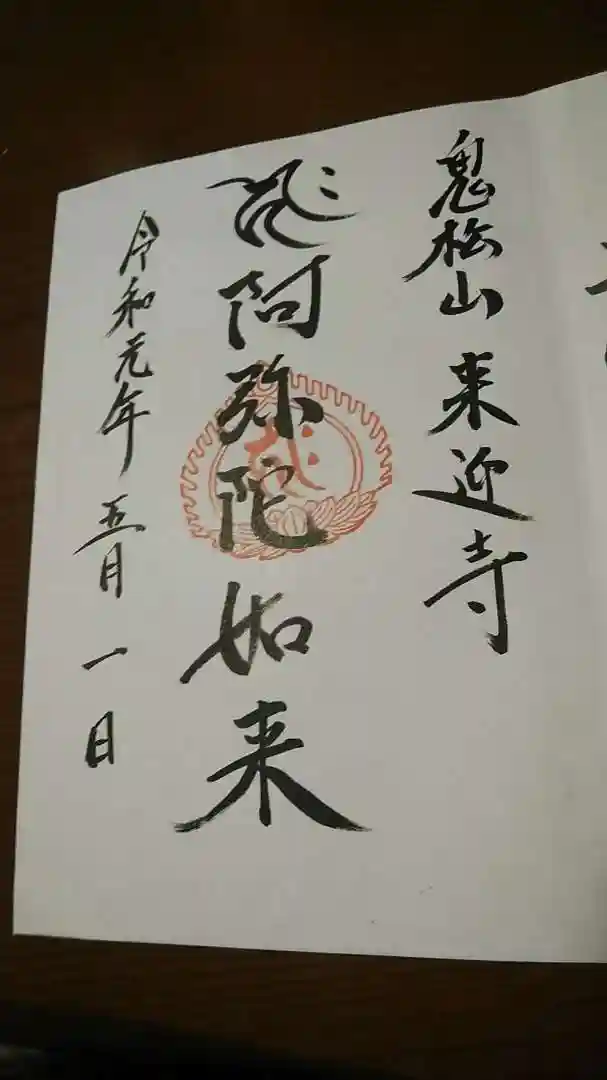 鬼松山 来迎寺
阿弥陀如来
令和元年 五月 一日